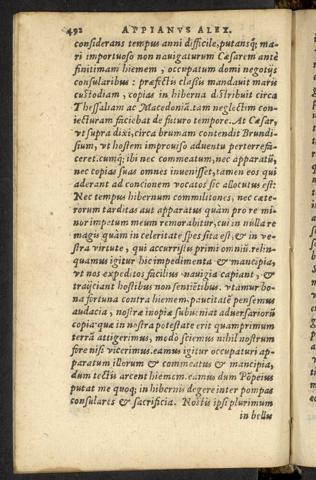 492 APPIANVS ALEX.
considerans tempus anni difficile, putansq́; ma-
ri importuoso non nauigaturum Cæsarem antè
finitimam hiemem, occupatum domi negotijs
consularibus: præfectis classiũ mandauit maris
custodiam, copias in hiberna distribuit circa
Thessaliam ac Macedoniã. tam neglectim con-
iecturam faciebat de futuro tempore. At Cæsar,
vt supra dixi, circa brumam contendit Brundi-
sium, vt hostem improuiso aduentu perterrefa-
ceret. cumq́; ibi nec commeatum, nec apparatũ,
nec copias suas omnes inuenisset, tamen eos qui
aderant ad concionem vocatos sic allocutus est:
Nec tempus hibernum commilitones, nec cæte-
rorum tarditas aut apparatus quàm pro re mi-
nor impetum meum remorabitur, cui in nulla re
magis quàm in celeritate spes sita est, & in ve-
stra virtute, qui accurristis primi omniũ. relin-
quamus igitur hic impedimenta & mancipia,
vt nos expeditos facilius nauigia capiant, &
traijciant hostibus non sentiẽtibus. vtamur bo-
na fortuna contra hiemem. paucitatẽ pensemus
audacia, nostræ inopiæ subueniat aduersariorũ
copia quæ in nostra potestate erit quamprimum
terrã attigerimus, modò sciemus nihil nostrum
fore nisi vicerimus. eamus igitur occupaturi ap-
paratum illorum & commeatus & mancipia,
dum tectis arcent hiemem. eamus dum Põpeius
putat me quoq; in hibernis degere inter pompas
consulares & sacrificia. Nostis ipsi plurimum
in bellu